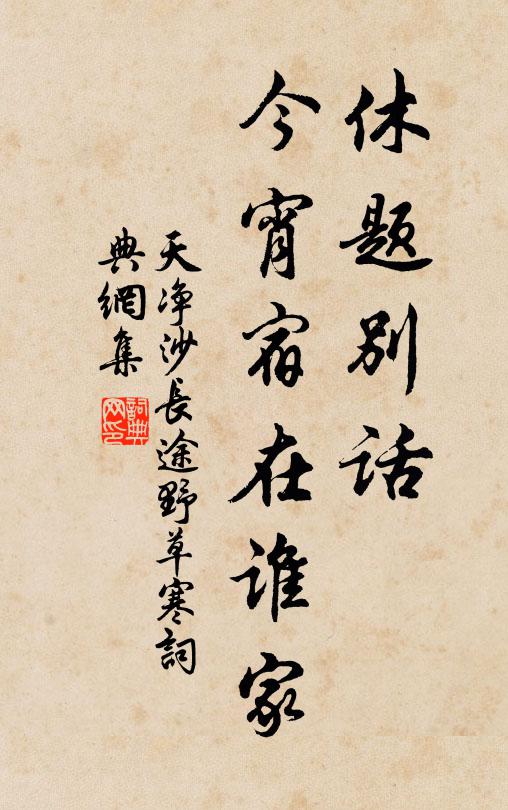 休题别话
今宵宿在谁家
天净沙長途野草寒詞
典網集
詞典網印